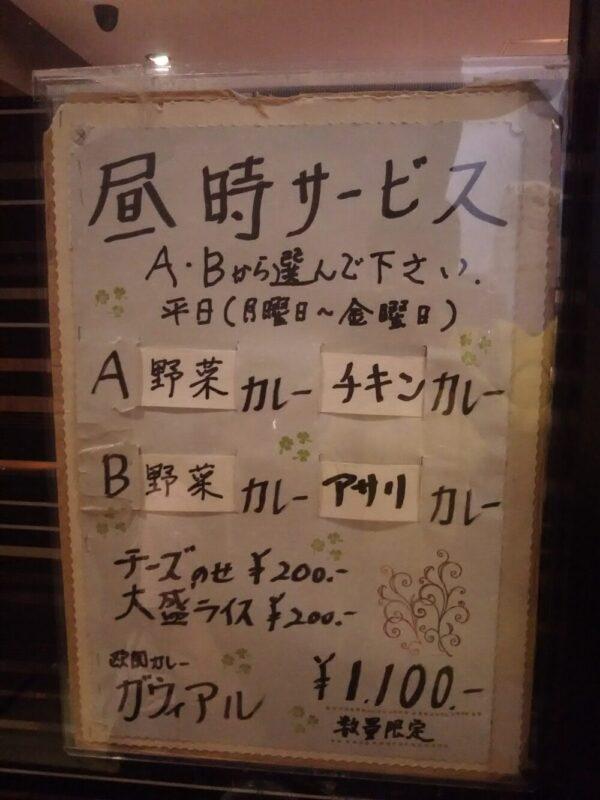 昼時サービス
A・Bから選んで下さい.
平日(月曜日~金曜日)
A 野菜カレー チキンカレー
B 野菜カレー アサリカレー
チーズのせ ¥200.-
大盛ライス ¥200.-
欧風カレー
ガヴィアル ¥1.100.-
数量限定